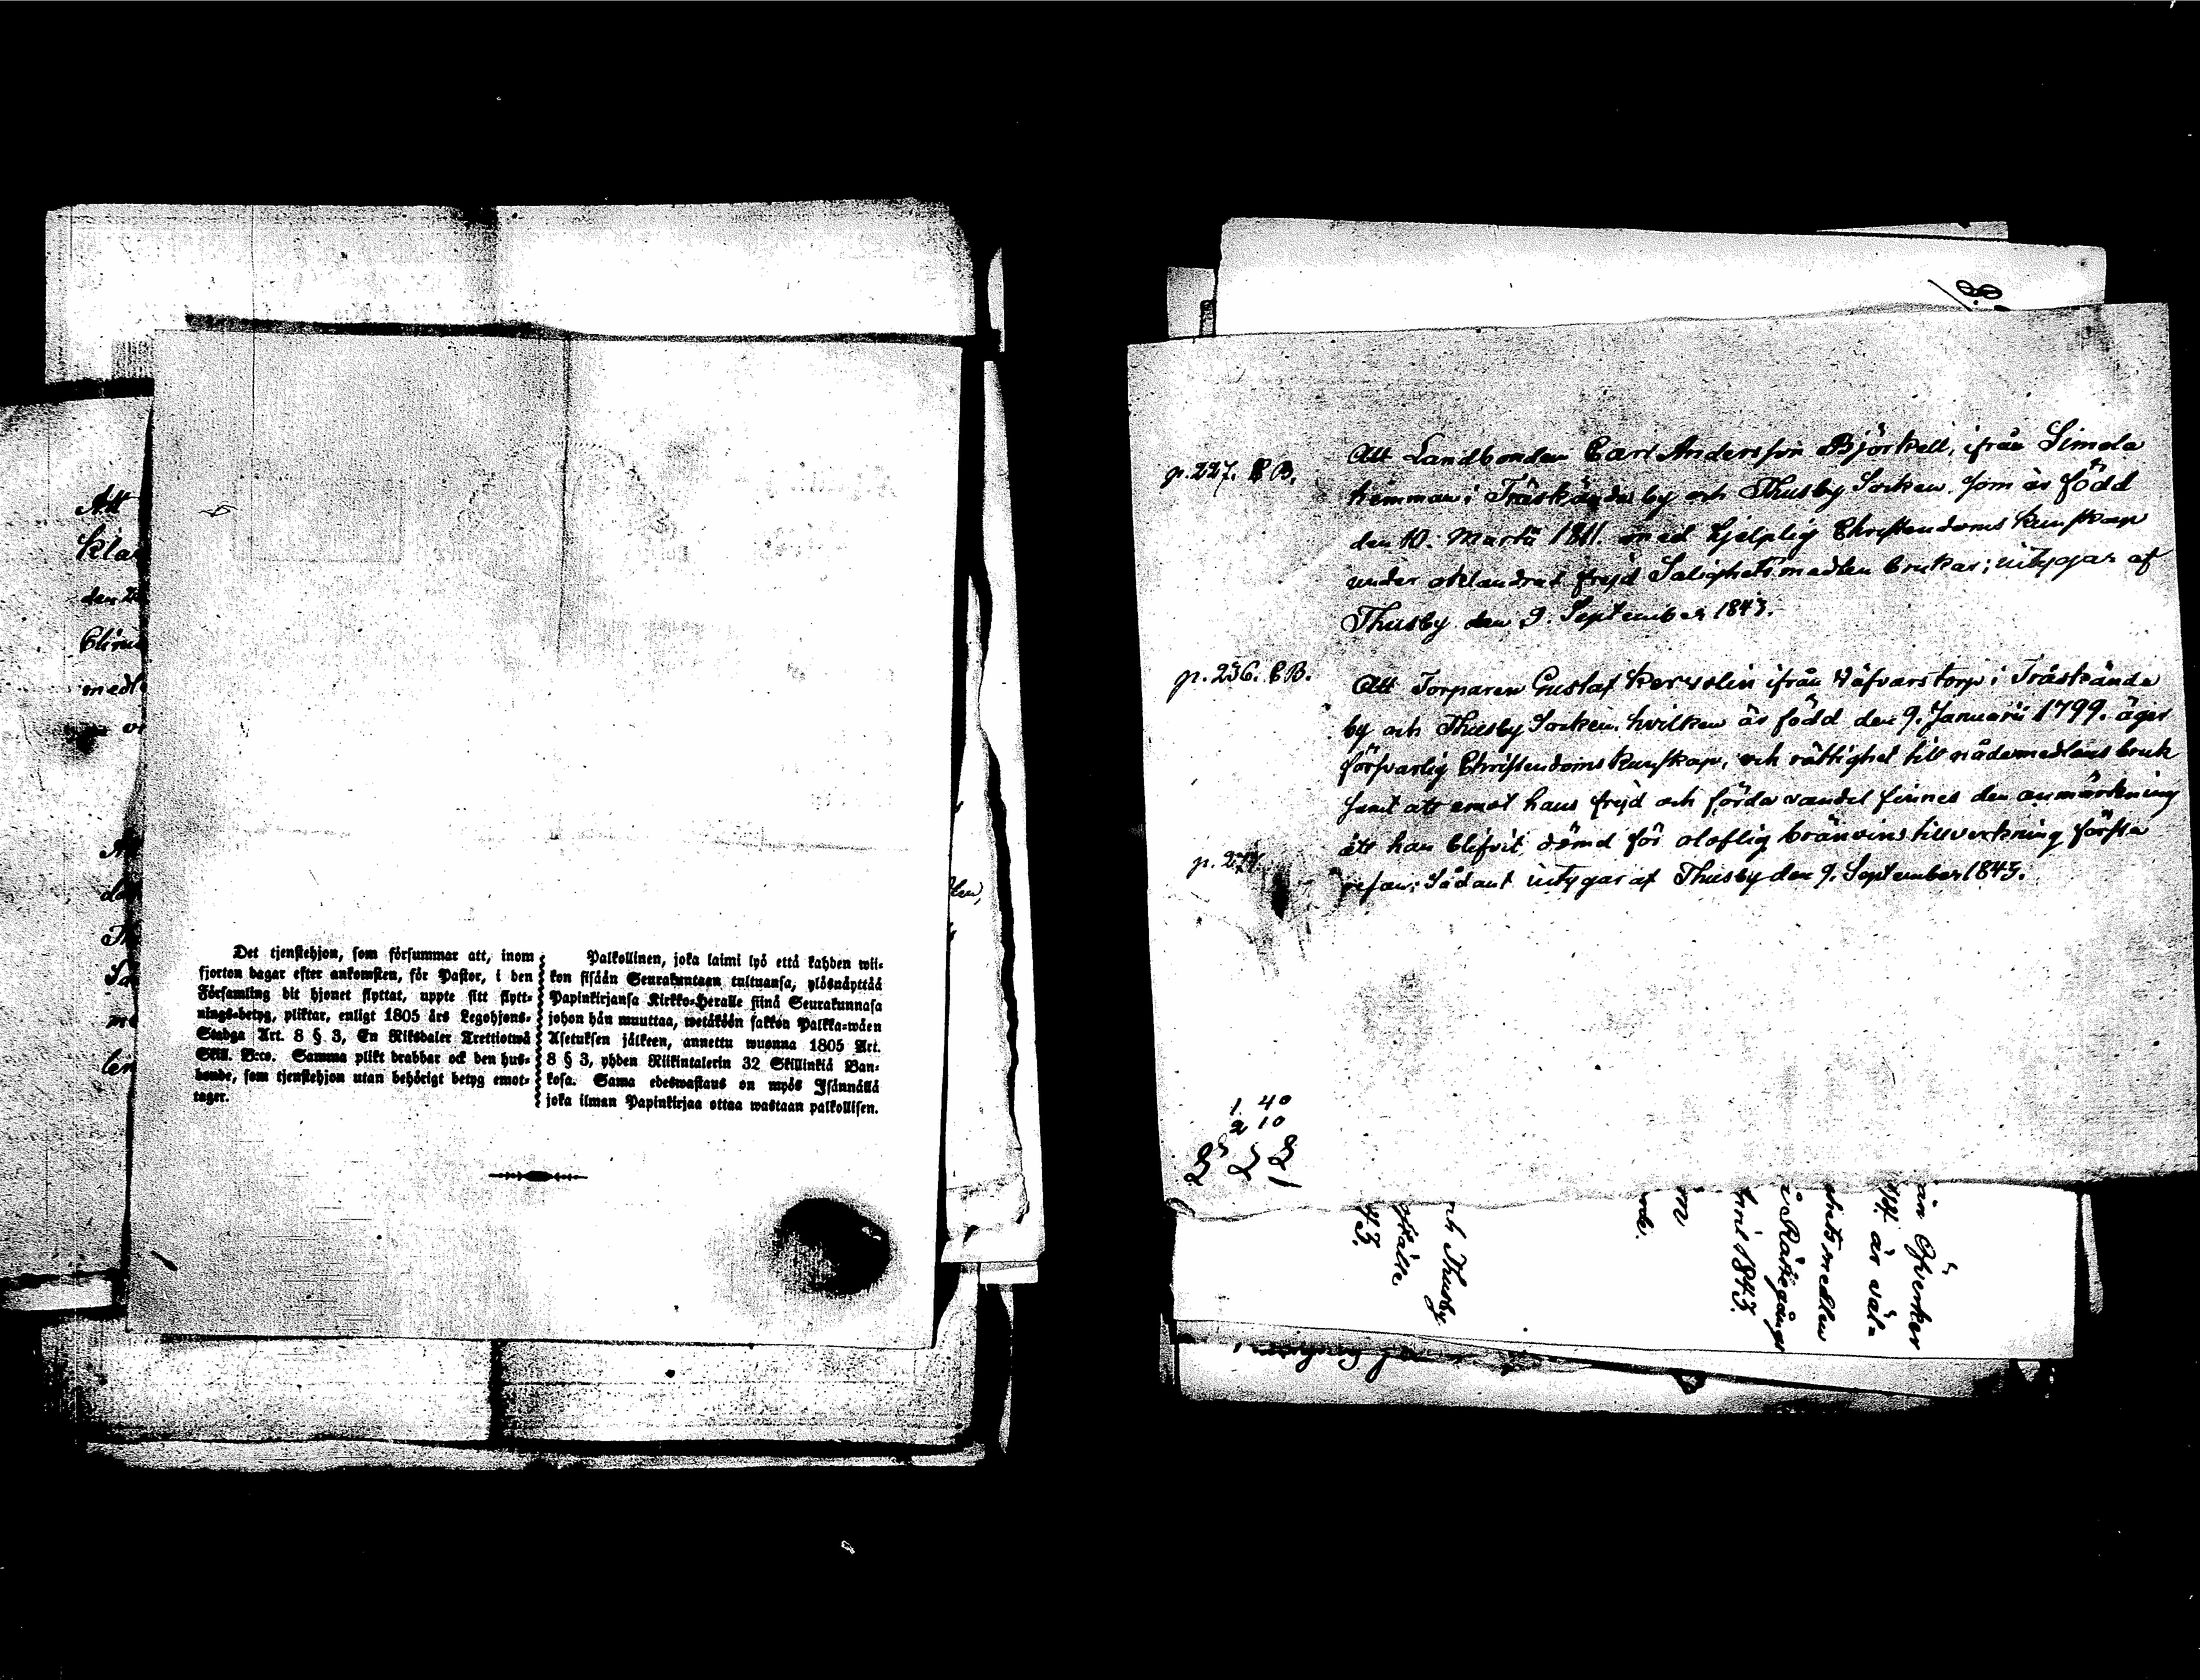 Att
kla
den 2
Blin
medl
Det tjenstehjon, som försummar att, inom
fjorton dagar efter ankomsten, för Pastor, i den
Församling dit hjonet flyttat, uppte sitt flytt-
nings-betyg, pliktar, enligt 1805 års Legohjons-
Stadga Art. 8 § 3, En Riksdaler Trettiotwå
Skill. B:co. Samma plikt drabbar ock den hus-
bonde, som tjenstehjon utan behörigt betyg emot-
tager.
Palkollinen, joka laimi lyö että kahden wii-
kon sisään Seurakuntaan tultuansa, ylösnäyttää
Papinkirjansa Kirkko-Heralle siinä Seurakunnasa
johon hän muuttaa, wetäköön sakkon Palkka-wäen
Asetuksen jälkeen, annettu wuonna 1805 Art.
8 § 3, yhden Riikintalerin 32 Skillinkiä Ban-
kosa. Sama edeswastaus on myös Isännällä
joka ilman Papinkirjaa ottaa wastaan palkollisen.
p. 227. C B.
Att Landbonden Carl Andersson Björkell, ifrån Simola
hemman i Träskända by och Thusby Socken, som är född
den 10. Martii 1811. med hjelplig Christendoms kunskap
under oklandrad frejd Salighetsmedlen brukar; intygar af
Thusby den 9. September 1843.
p. 256. C B.
Att Torparen Gustaf Kervolin ifrån Wäfvarstorp i Träskända
by och Thusby Socken, hvilken är född den 9. Januarii 1799. äger
försvarlig Christendoms kunskap, och rättighet till nådemedlens bruk
samt att emot hans frejd och förda vandel finnes den anmärkning
att han blifvit dömd för oloflig bränvins tillverkning första
resan; Sådant intygar af Thusby den 9. September 1843.
p. 27
1 40
2 10
än Öfverker
är väl-
shetsmedlen
i Rättegångs
1843.
ch Thusby
43.